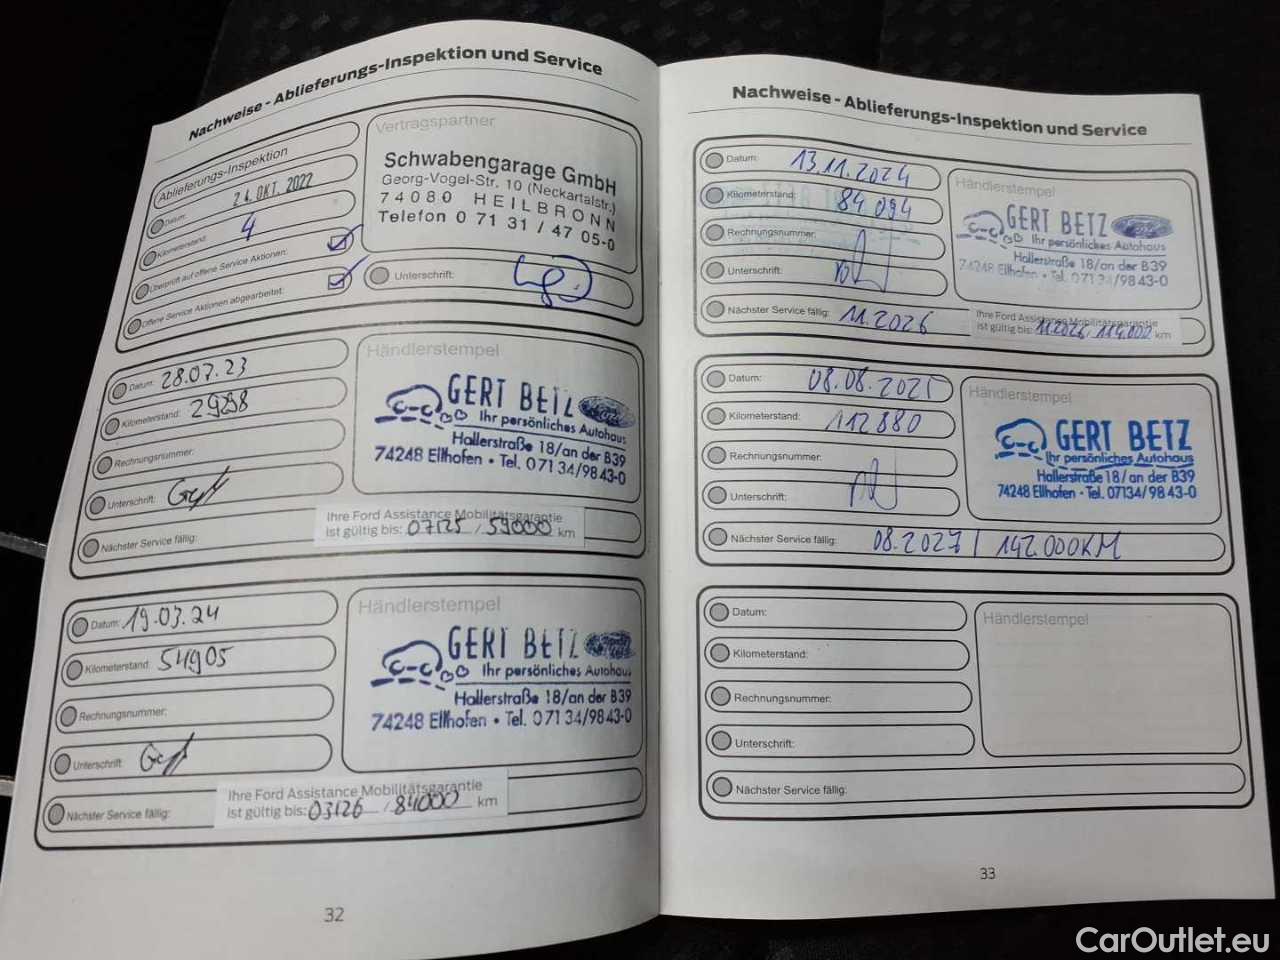 Nachweise - Ablieferungs-Inspektion und Service
Ablieferungs-Inspektion
Datum: 24. OKT. 2022
Kilometerstand: 4
Überprüft auf offene Service Aktionen:
Offene Service Aktionen abgearbeitet:
Vertragspartner
Schwabengarage GmbH
Georg-Vogel-Str. 10 (Neckartalstr.)
74080 HEILBRONN
Telefon 0 71 31 / 47 05-0
Unterschrift:
Datum: 28.07.23
Kilometerstand: 29298
Rechnungsnummer:
Unterschrift:
Nächster Service fällig:
Händlerstempel
GERT BETZ
Ihr persönliches Autohaus
Hallerstraße 18/an der B39
74248 Ellhofen • Tel. 07134/9843-0
Ihre Ford Assistance Mobilitätsgarantie
ist gültig bis: 07125 / 59000 km
Datum: 19.03.24
Kilometerstand: 54905
Rechnungsnummer:
Unterschrift:
Nächster Service fällig:
Händlerstempel
GERT BETZ
Ihr persönliches Autohaus
Hallerstraße 18/an der B39
74248 Ellhofen • Tel. 07134/9843-0
Ihre Ford Assistance Mobilitätsgarantie
ist gültig bis: 03126 / 84000 km
32
Nachweise - Ablieferungs-Inspektion und Service
Datum: 13.11.2024
Kilometerstand: 84094
Rechnungsnummer:
Unterschrift:
Nächster Service fällig: 11.2026
Händlerstempel
GERT BETZ
Ihr persönliches Autohaus
Hallerstraße 18/an der B39
74248 Ellhofen • Tel. 07134/9843-0
Ihre Ford Assistance Mobilitätsgarantie
ist gültig bis: 11.2026 / 114.000 km
Datum: 08.08.2025
Kilometerstand: 112880
Rechnungsnummer:
Unterschrift:
Nächster Service fällig: 08.2027 / 142.000KM
Händlerstempel
GERT BETZ
Ihr persönliches Autohaus
Hallerstraße 18/an der B39
74248 Ellhofen • Tel. 07134/9843-0
Datum:
Kilometerstand:
Rechnungsnummer:
Unterschrift:
Nächster Service fällig:
Händlerstempel
33
CarOutlet.eu